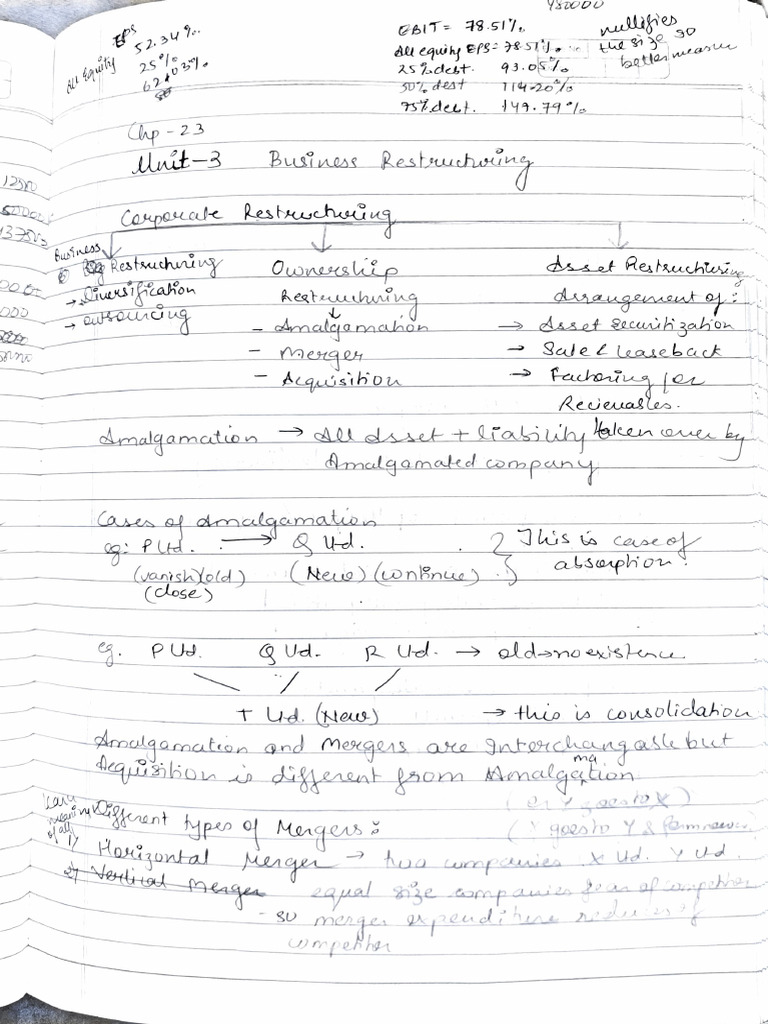 452000
EPS
All Equity 52.34%
25%
62.03%
EBIT = 78.51%
All equity EPS = 78.51%
25% debt. 93.05%
50% debt 114.20%
75% debt. 149.79%
nullifies
the size so
better measure
Chp - 23
Unit-3 Business Restructuring
Corporate Restructuring
Business
Restructuring
→ Diversification
→ outsourcing
Ownership
Restructuring
- Amalgamation
- Merger
- Acquisition
Asset Restructuring
Arrangement of:
→ Asset securitization
→ Sale & leaseback
→ Factoring for
Recievables.
Amalgamation → All Asset + liability taken over by
Amalgamated company
Cases of Amalgamation
eg: P Ltd. → Q Ltd.
(vanish)(old) (New) (continue)
(close)
This is case of
absorption.
eg. P Ltd. Q Ltd. R Ltd. → old → no existence
T Ltd. (New) → this is consolidation
Amalgamation and Mergers are Interchangable but
Acquisition is different from Amalgamation
(or Y goes to X)
goes to Y & form new
Learn
meaning
of all
Different types of Mergers:
1) Horizontal Merger → two companies X Ltd. Y Ltd
2) Vertical Merger equal size companies fear of competitor
- so merger expenditure reduces of
competitor
12500